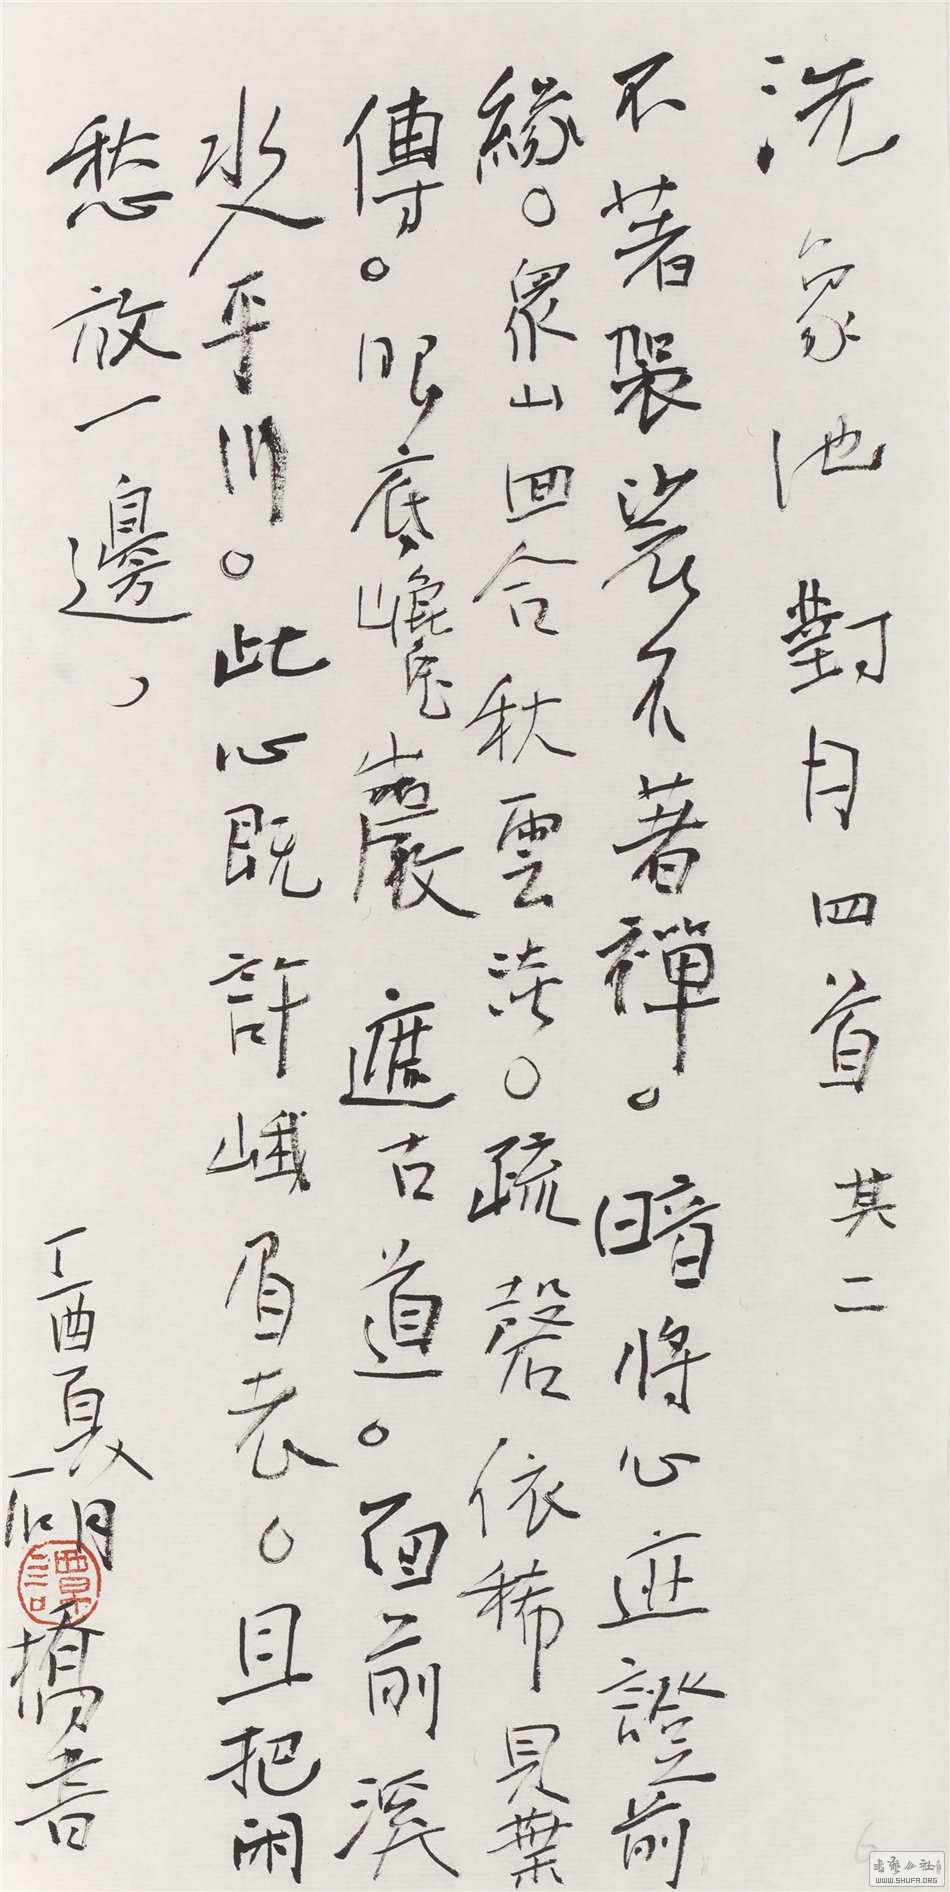 洗象池對月四首 其二
不著袈裟不著禪。暗將心迹證前
緣。眾山回合秋雲淡。疏磬依稀貝葉
傳。眼底巉巖遮古道。面前溪
水入平川。此心既許峨眉老。且把闲
愁放一邊。
丁酉夏 橋書
譚
书艺公社
WWW.SHUFA.ORG